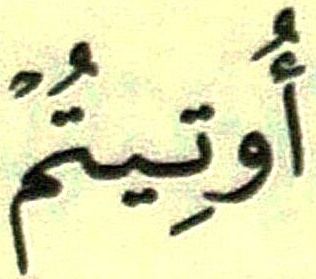 أُوتِيتُمْ